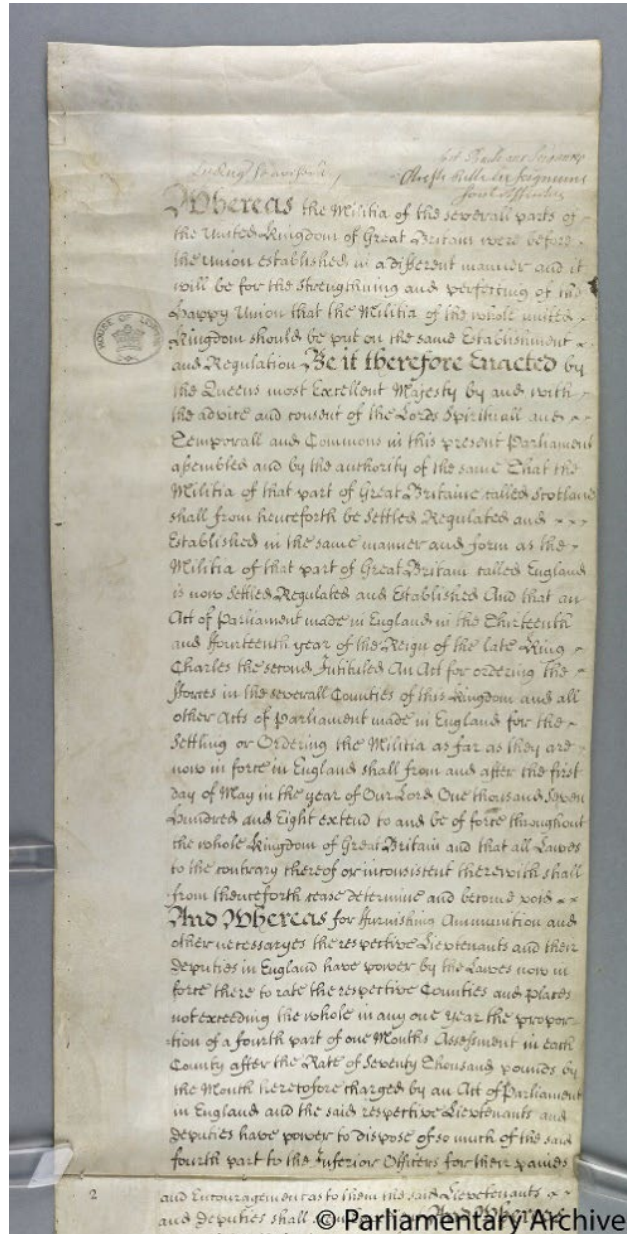 Soit Baille aux Seigneurs
A ceste Bille les Seigneurs
sont assentus
Whereas the Militia of the severall parts of
the United Kingdom of Great Britain were before
the Union established in a different manner and it
will be for the strengthning and perfecting of the
Happy Union that the Militia of the whole united
Kingdom should be put on the same Establishment
and Regulation Be it therefore Enacted by
the Queens most Excellent Majesty by and with
the advice and consent of the Lords Spirituall and
Temporall and Commons in this present Parliament
assembled and by the authority of the same That the
Militia of that part of Great Britaine called Scotland
shall from henceforth be Settled Regulated and
Established in the same manner and form as the
Militia of that part of Great Britain called England
is now Settled Regulated and Established And that an
Act of Parliament made in England in the Thirteenth
and ffourteenth year of the Reign of the late King
Charles the second Intituled An Act for ordering the
fforces in the severall Counties of this Kingdom and all
other Acts of Parliament made in England for the
Settling or Ordering the Militia as far as they are
now in force in England shall from and after the first
day of May in the year of Our Lord One thousand Seven
hundred and Eight extend to and be of force throughout
the whole Kingdom of Great Britain and that all Lawes
to the contrary thereof or inconsistent therewith shall
from thenceforth cease determine and become void
And Whereas for ffurnishing Ammunition and
other necessaryes the respective Lievtenants and their
Deputies in England have power by the Lawes now in
force there to rate the respective Counties and Places
not exceeding the whole in any one year the propor-
tion of a fourth part of one Months Assessment in each
County after the Rate of Seventy Thousand pounds by
the Month heretofore charged by an Act of Parliament
in England and the said respective Lievtenants and
Deputies have power to dispose of so much of the said
fourth part to the Inferior Officers for their paines
2
and Encouragement as to them the said Lievetenants
and Deputies shall And Whereas
HOUSE OF LORDS
© Parliamentary Archive